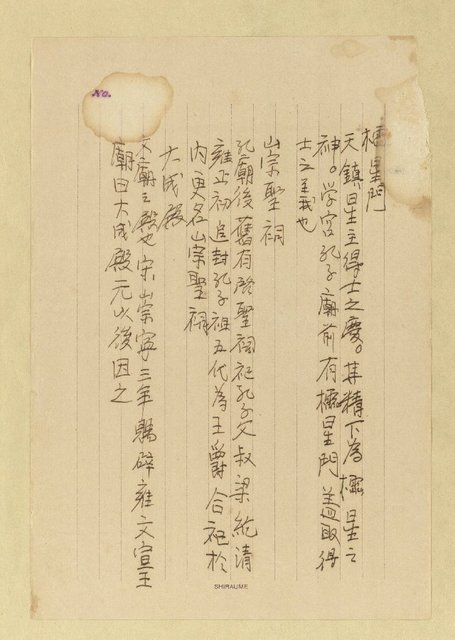 No.
櫺星門
天鎮星主得士之慶。其精下為櫺星之
神。学宮孔子廟前有櫺星門蓋取得
士之義也
崇聖祠
孔廟後舊有啓聖祠祀孔子父叔梁紇清
雍正初追封孔子祖五代為王爵合祀於
内更名崇聖祠
大成殿
文廟之殿也宋崇寧三年賜辟雍文宣王
廟曰大成殿元以後因之
SHIRAUME